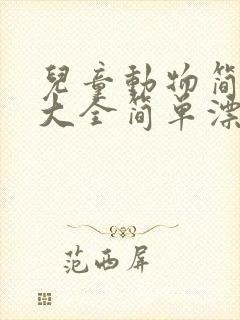 兒童動物简
大全简单漂
范西屏